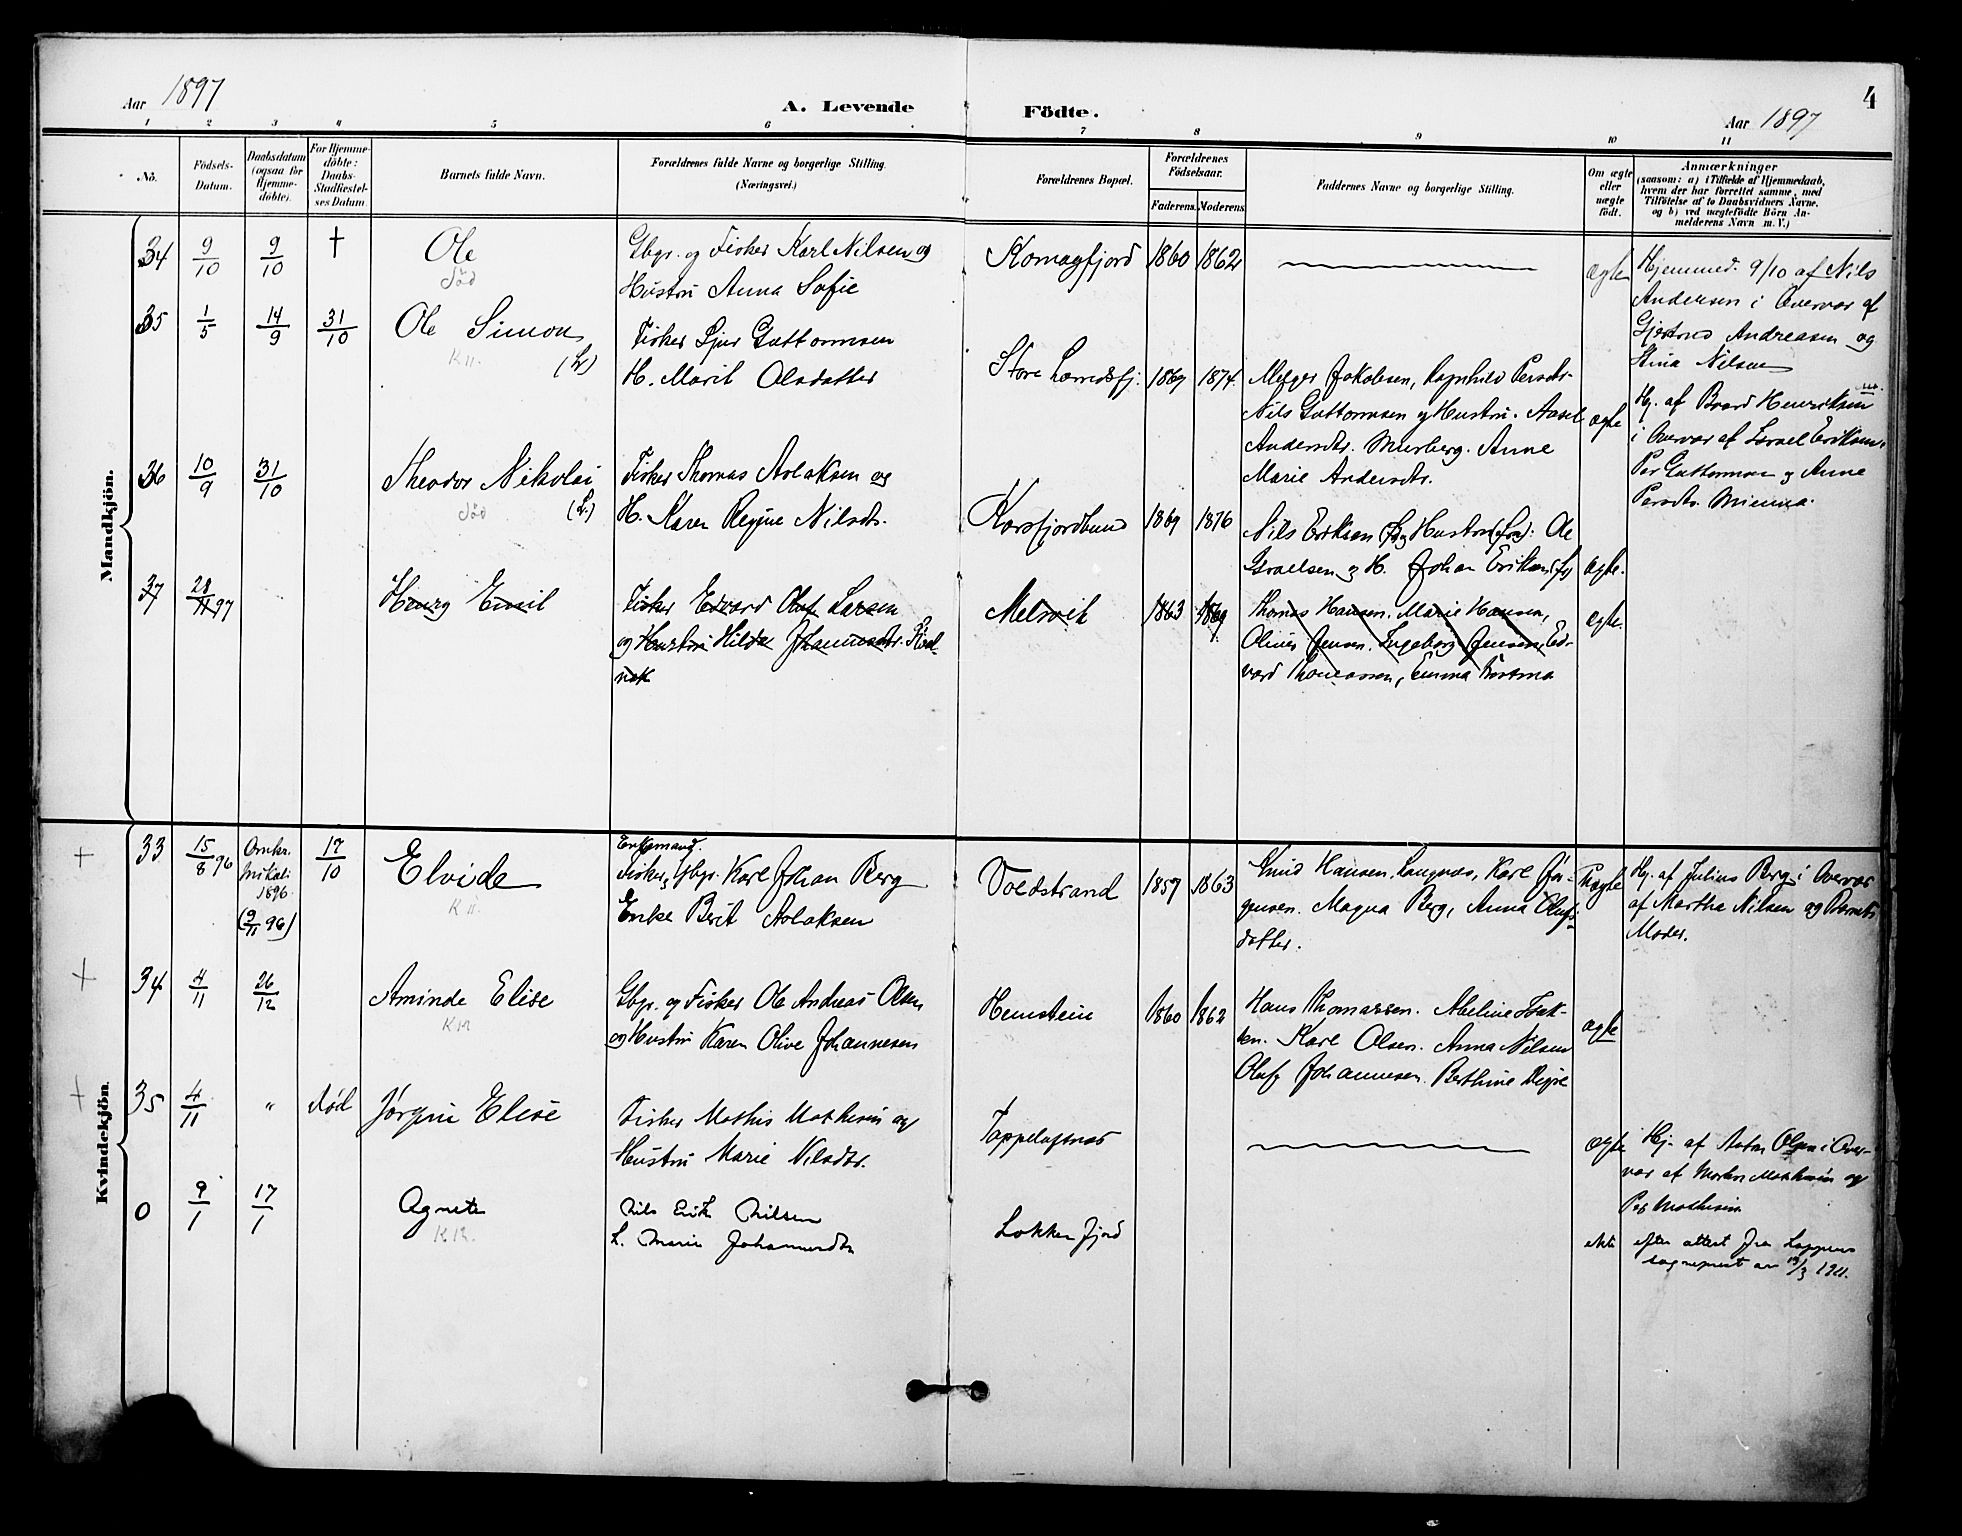 Aar 1897
A. Levende Födte.
Aar 1897
4
1 2 3 4 5 6 7 8 9 10 11
No.
Födsels-Datum.
Daabsdatum (ogsaa for Hjemme-döbte).
For Hjemme-döbte: Daabs-Stadfæstel-ses Datum.
Barnets fulde Navn.
Forældrenes fulde Navne og borgerlige Stilling.
(Næringsvei.)
Forældrenes Bopæl.
Forældrenes Födselsaar.
Faderens. Moderens.
Faddernes Navne og borgerlige Stilling.
Om ægte eller uægte födt.
Anmærkninger
(saasom: a) i Tilfælde af Hjemmedaab,
hvem der har forrettet samme, med
Tilföielse af to Daabsvidners Navne,
og b) ved uægtefödte Börn An-
melderens Navn m. V.)
Mandkjön.
34 9/10 9/10 † Ole
Død
Gbgr. og Fisker Karl Nilsen og
Hustru Anna Sofie
Komagfjord 1860 1862
ægte
Hjemmed. 9/10 af Nils
Andersen i Overvær af
Andreasen og
Stina Nilsen
35 1/5 14/9 31/10 Ole Simon
K 11. (L)
Fisker Sjur Guttormsen
H. Marit Olsdatter
Store 1869 1874
Jakobsen, Ragnhild Persdtr.
Nils Guttormsen og Hustru. Aasel
Andersdtr. Murberg. Anne
Marie Andersdtr.
ægte
Hj. af Baard Henriksen
i Overvær af Israel Eriksen.
Per Guttormsen og Anne
Persdtr. Mienna.
36 10/9 31/10 Theodor Nikolai
Død (L.)
Fisker Thomas Aslaksen og
H. Karen Regine Nilsdtr.
Korsfjordbund 1869 1876
Nils Eriksen (L) og Hustru : Ole
Israelsen og H. Johan Eriksen (L)
ægte.
37 28/11 97 Henry Emil
Fisker Edvard Oluf Larsen
og Hustru Hilda Johannesdtr.
Melsvik 1863 1869
Thomas Hansen. Marie Hansen,
Oliver Jensen. Ingeborg Jensen, Ed-
vard Thomassen, Emma
ægte.
Kvindekjön.
+ 33 15/8 96 1896 (9/11 96) 17/10 Elvide
K 11.
Enkemand.
Fisker, Gbgr. Karl Johan Berg
Enke Berit Aslaksen
Voldstrand 1857 1863
Knud Hansen, Langnæs, Karl Jør-
gensen. Magna Berg, Anna Olufs-
datter.
Uægte
Hj. af Julius Berg i Overvær
af Martha Nilsen og Barnets
Moder.
+ 34 4/11 26/12 Aminde Elise
K 12
Gbgr. og Fisker Ole Andreas Olsen
og Hustru Karen Olive Johannesen
Hemstein 1860 1862
Hans Thomassen. Abeline Isak-
sen. Karl Olsen. Anna Nilsen
Oluf Johannesen. Berthine
ægte
+ 35 4/11 " død Jørgine Elise
Fisker Mathis Mathisen og
Hustru Marie Nilsdtr.
Tappelufsnes
ægte
Hj. af Anton Olsen i Over-
vær af Morten Mathisen og
Per Mathisen
0 9/1 17/1 Agnete
K 12.
Nils Erik Nilsen
L. Marie Johannesdtr
Lokkerfjord
ekte
efter attest fra Loppens
sogneprest av 13/3 1911.